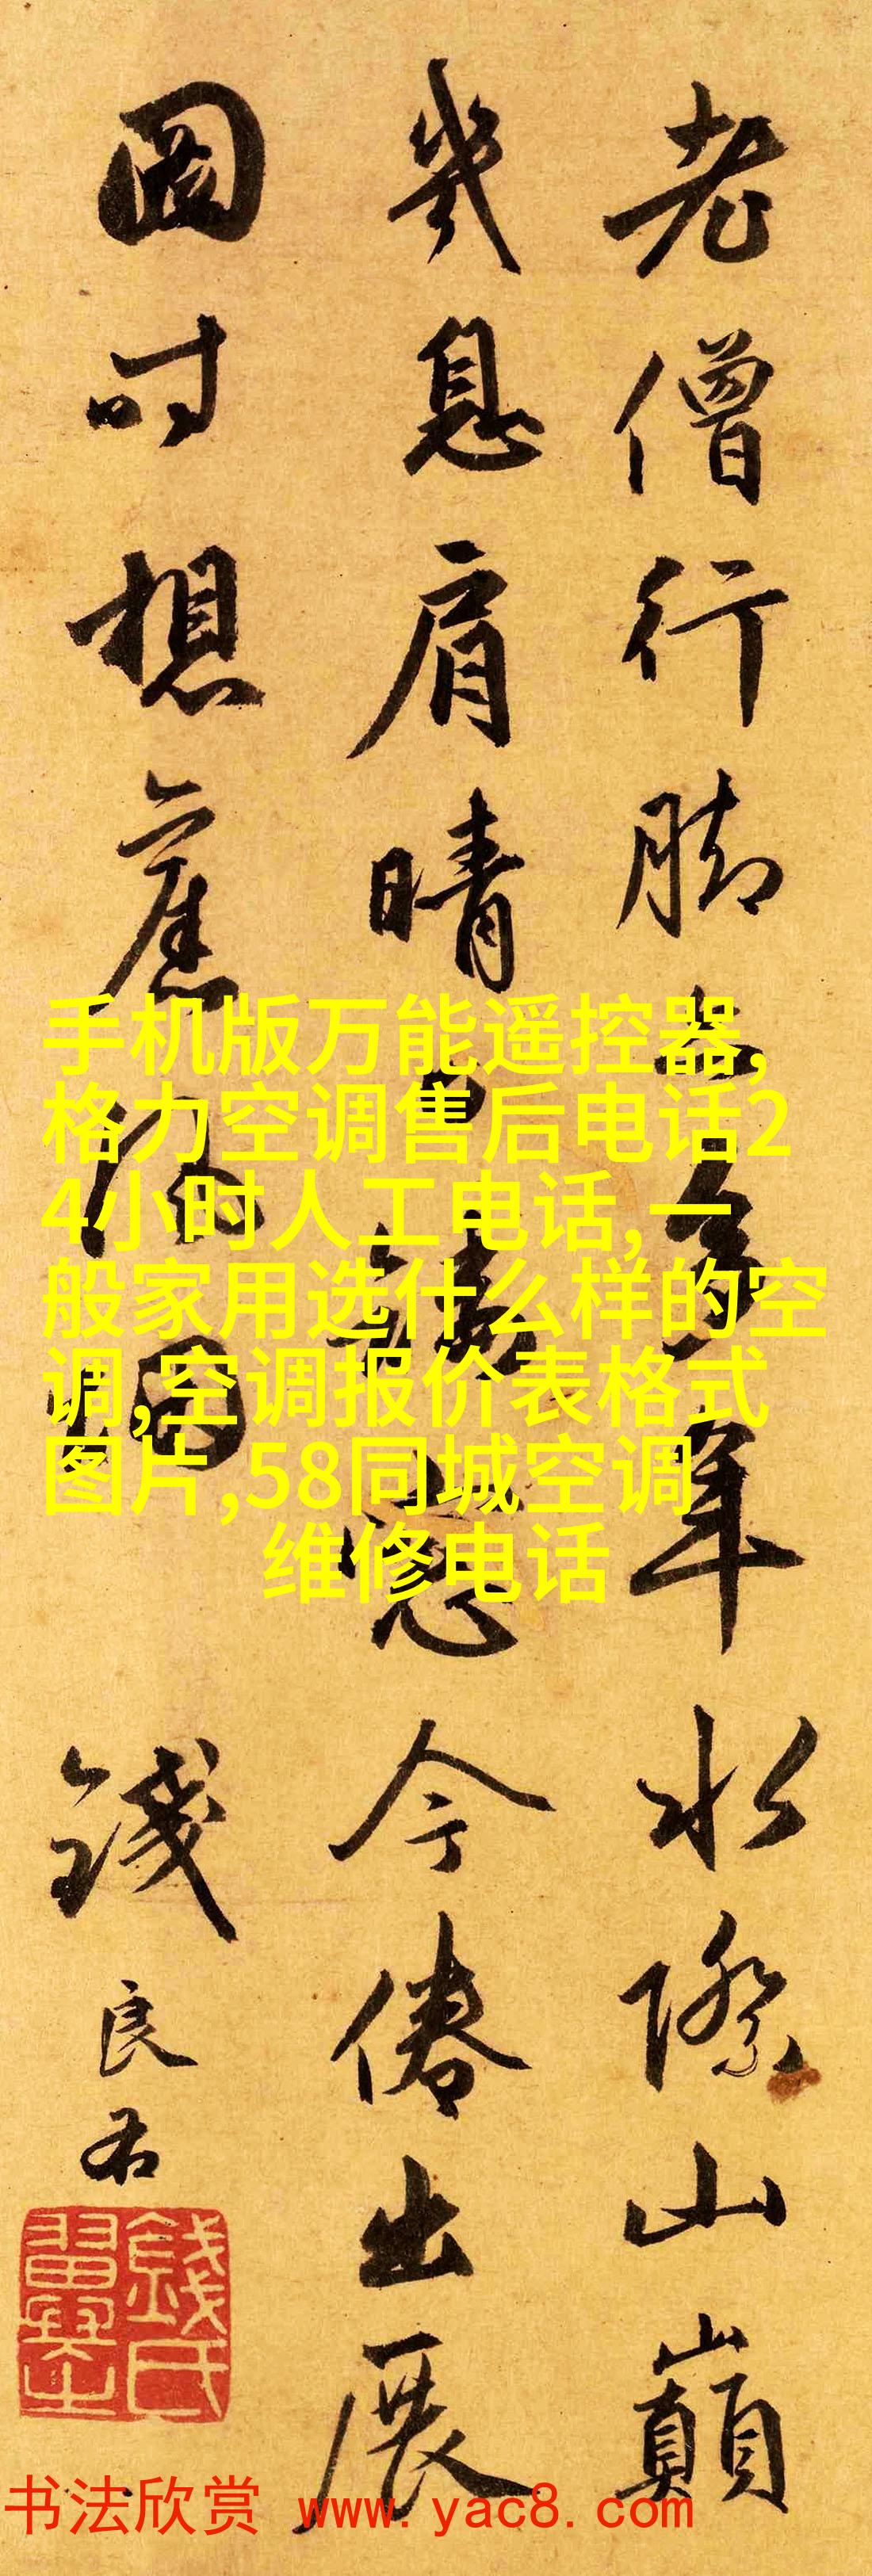 老僧行脚 年水際山巔
幾息肩晴 今倦出展
圖时想舊
錢良右
錢氏翼之
手机版万能遥控器,
格力空调售后电话2
4小时人工电话,一
般家用选什么样的空
调,空调报价表格式
图片,58同城空调
维修电话
书法欣赏 www.yac8.com